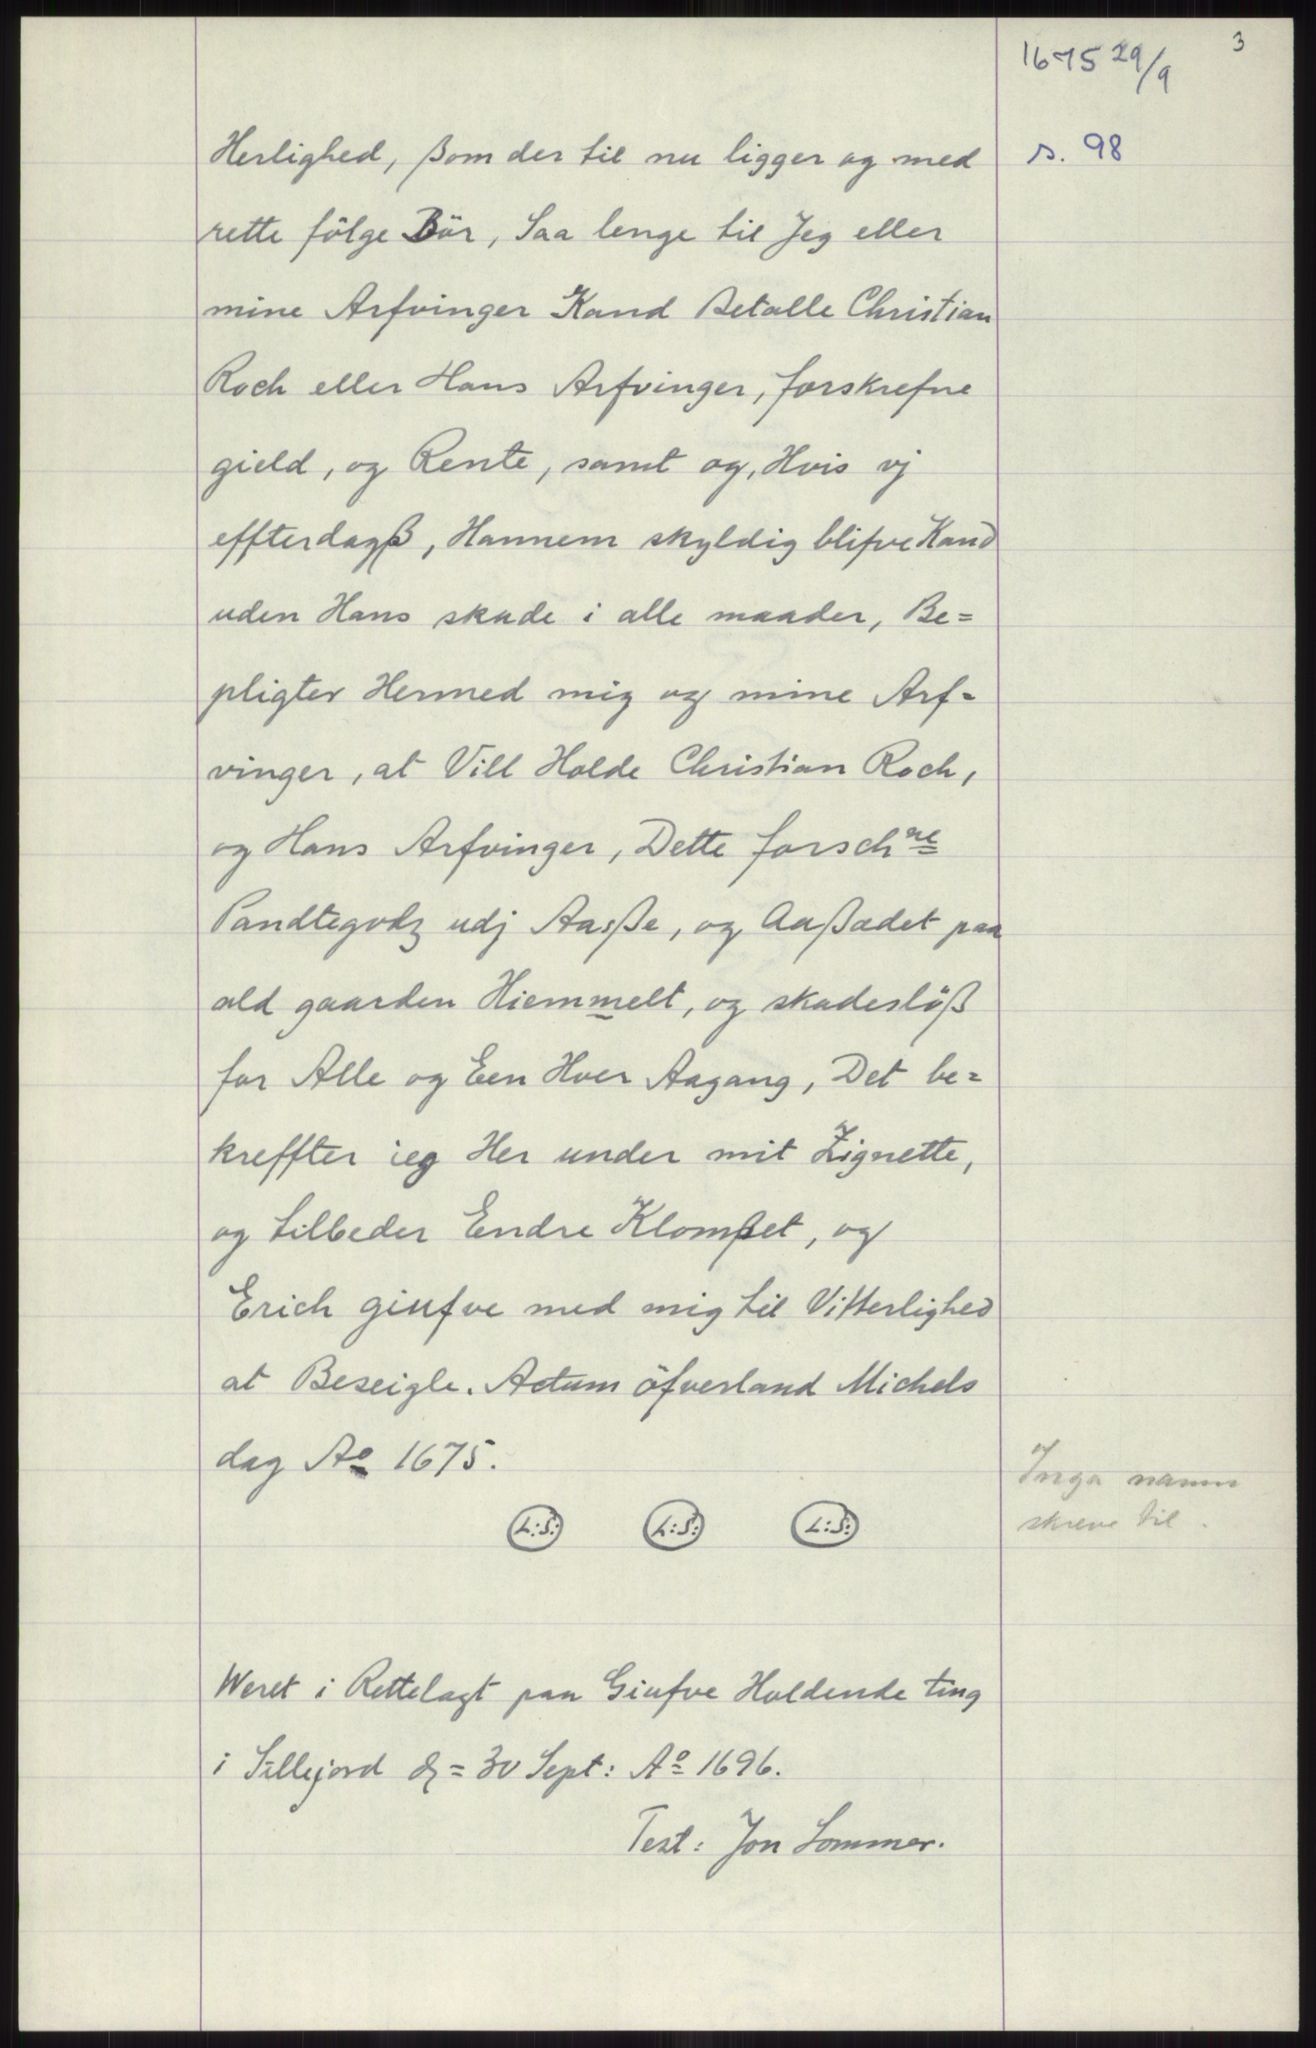 3
1675 29/9
s. 98
Herlighed, ßom der til nu ligger og med
rette fölge Bör, Saa lenge til Jeg eller
mine Arfvinger Kand Betalle Christian
Roch eller Hans Arfvinger, forskrefne
gield, og Rente, samt og, Hvis vj
effterdagß, Hannem skyldig blifve Kand
uden Hans skade i alle maader, Be=
pligter Hermed mig og mine Arf-
vinger, at Vill Holde Christian Roch,
og Hans Arfvinger, Dette forschne
Pandtegodz udj Aasße, og Aaßædet paa
ald gaarden Hiemmelt, og skadeslöß
for Alle og Een Hver Aagang, Det be=
kreffter ieg Her under mit Zignette,
og tilbeder Endre Klomßet, og
Erich giufve med mig til Vitterlighed
at Beseigle. Actum öfverland Michels
dag Ao 1675.
L:S: L:S: L:S:
Inga namn
skreve til.
Weret i Rettelagt paa Giufve Holdende ting
i Sillejord d = 30 Sept: Ao 1696.
Test: Jon Sommer.